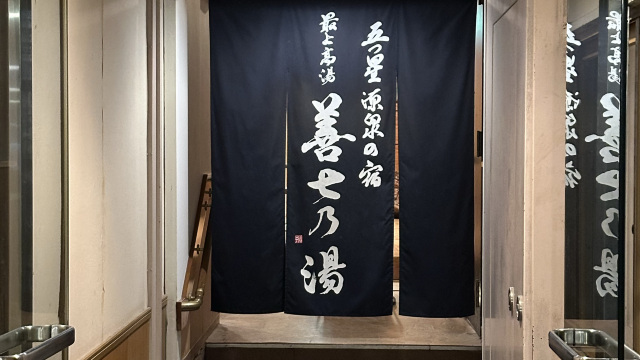 五つ星源泉の宿
最上高湯
善七乃湯